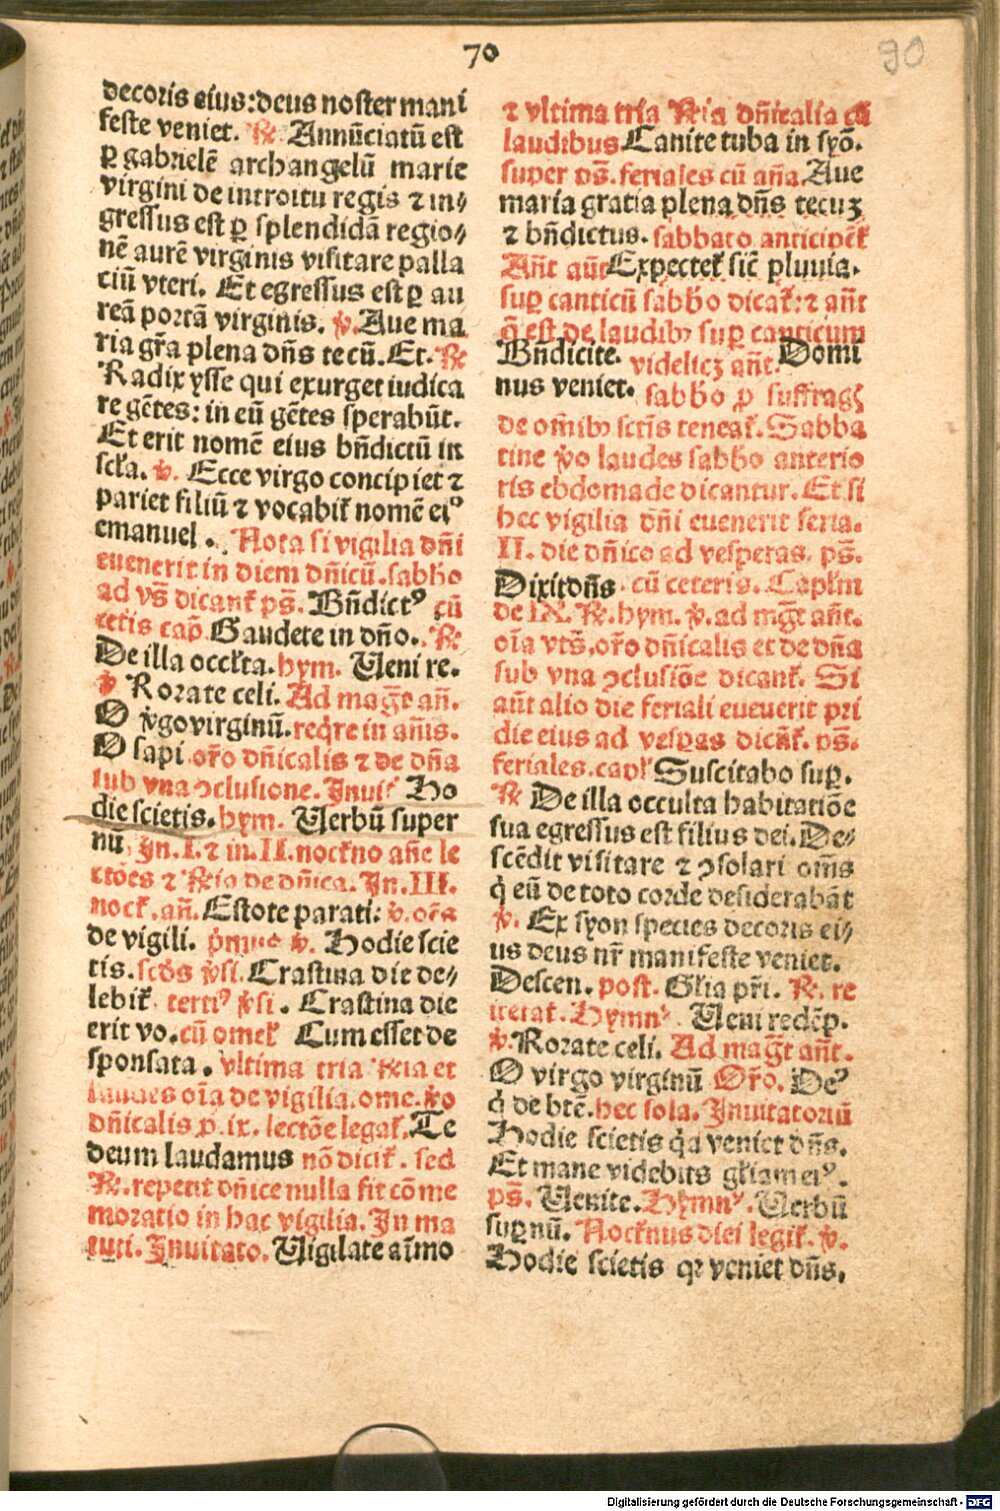 70
90
decoris eius: deus noster mani
feste veniet. ℟. Annūciatū est
ꝑ gabrielē archangelū marie
virgini de introitu regis ⁊ in⸗
gressus est ꝑ splendidā regio⸗
nē aurē virginis visitare palla
ciū vteri. Et egressus est ꝑ au
reā portā virginis. ℣. Aue ma
ria gr̄a plena dn̄s tecū. Et. ℟
Radix ysse qui exurget iudica
re gētes: in eū gētes sperabūt.
Et erit nomē eius bn̄dictū in
scła. ℣. Ecce virgo concipiet ⁊
pariet filiū ⁊ vocabit̄ nomē eiꝰ
emanuel. Nota si vigilia dn̄i
euenerit in diem dn̄icū. sabbo
ad vs̄ dicant̄ ps̄. Bn̄dictꝰ cū
cetis cap̄. Gaudete in dn̄o. ℟
De illa occłta. hym. Ueni re.
℣ Rorate celi. Ad mag̅t an̄.
O v̊go virginū. req̊re in an̄is.
O sapi or̄o dn̄icalis ⁊ de dn̄a
sub vna ꝯclusione. Inuit̄ Ho
die scietis. hym. Uerbū super
nū. In. I. ⁊ in. II. noct̄no an̄e le
ctōes ⁊ ℟ia de dn̄ica. In. III.
noct̄. an̄. Estote parati: ℣. oīa
de vigili. p̊mus ℣. Hodie scie
tis. scds v̊si. Crastina die de⸗
lebit̄ tertiꝰ v̊si. Crastina die
erit vo. cū omet̄ Cum esset de
sponsata. vltima tria ℟ia et
laudes oīa de vigilia. ome. v̊o
dn̄icalis ꝑ. ix. lectōe legat̄. Te
deum laudamus nō dicit̄. sed
℟. repetit dn̄ice nulla fit cōme
moratio in hac vigilia. In ma
tuti. Inuitato. Uigilate aīmo
⁊ vltima tria ℟ia dn̄icalia cū
laudibus Canite tuba in syō.
super ps̄. feriales cū an̄a. Aue
maria gratia plena dn̄s tecuꝫ
⁊ bn̄dictus. sabbato anticipēt̄
An̄t aūt Expectet̄ sic̄ pluuia.
suꝑ canticū sabbo dicat̄: ⁊ an̄t
q̄ est de laudibꝰ suꝑ canticum
Bn̄dicite. videlicꝫ an̄t. Domi
nus veniet. sabbo ꝓ suffrag
de om̄ibꝰ sctīs teneat̄. Sabba
tine v̊o laudes sabbo anterio
ris ebdomade dicantur. Et si
hec vigilia dn̄i euenerit feria.
II. die dn̄ico ad vesperas. ps̄.
Dixit dn̄s. cū ceteris. Capl̄m
de IX. ℟. hym. ℣. ad mag̅t an̄t.
oīa vts̄. or̄o dn̄icalis et de dn̄a
sub vna ꝯclusiōe dicant̄. Si
aūt alio die feriali eueuerit pri
die eius ad vesꝑas dicāt̄. ps̄.
feriales. capl̄ Suscitabo suꝑ.
℟ De illa occulta habitatiōe
sua egressus est filius dei. De⸗
scēdit visitare ⁊ ꝯsolari om̄s
q̊ eū de toto corde desiderabāt
℣. Ex syon species decoris ei⸗
us deus nr̄ manifeste veniet.
Descen. post. Gl̄ia pr̄i. ℟. re
iterat. Hymnꝰ. Ueni redēp.
℣. Rorate celi. Ad mag̅t an̄t.
O virgo virginū Or̄o. Deꝰ
q̊ de btē. hec sola. Inuitatoriū
Hodie scietis q̊a veniet dn̄s.
Et mane videbitis gl̄iam eiꝰ.
ps̄. Uenite. Hymnꝰ. Uerbū
suꝑnū. Noct̄nus diei legit̄. ℣.
Hodie scietis qꝛ veniet dn̄s.
Digitalisierung gefördert durch die Deutsche Forschungsgemeinschaft - DFG